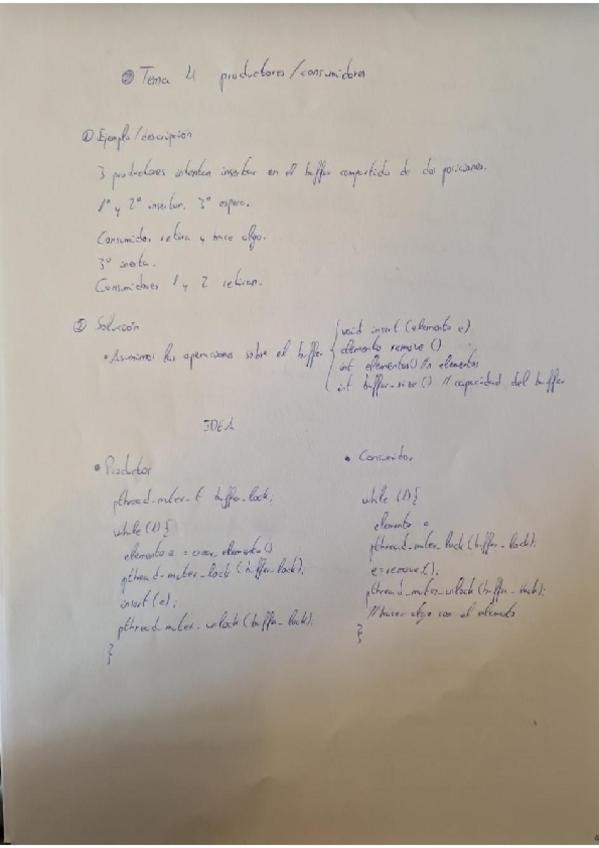 Tema 4 productores/consumidores
① Ejemplo/descripción
3 productores intentan insertar en el buffer compartido de dos posiciones.
1º y 2º insertan, 3º espera.
Consumidor retira y hace algo.
3º inserta.
Consumidores 1 y 2 retiran.
② Solución
• Asumimos las operaciones sobre el buffer
void insert (elemento e)
elemento remove ()
int elementos() // n elementos
int buffer_size () // capacidad del buffer
IDEA
• Productor
pthread_mutex_t buffer_lock;
while (1) {
elemento e = crear_elemento()
pthread_mutex_lock (buffer_lock);
insert (e);
pthread_mutex_unlock (buffer_lock);
}
• Consumidor
while (1) {
elemento e
pthread_mutex_lock (buffer_lock);
e = remove();
pthread_mutex_unlock (buffer_lock);
// hacer algo con el elemento
}
4